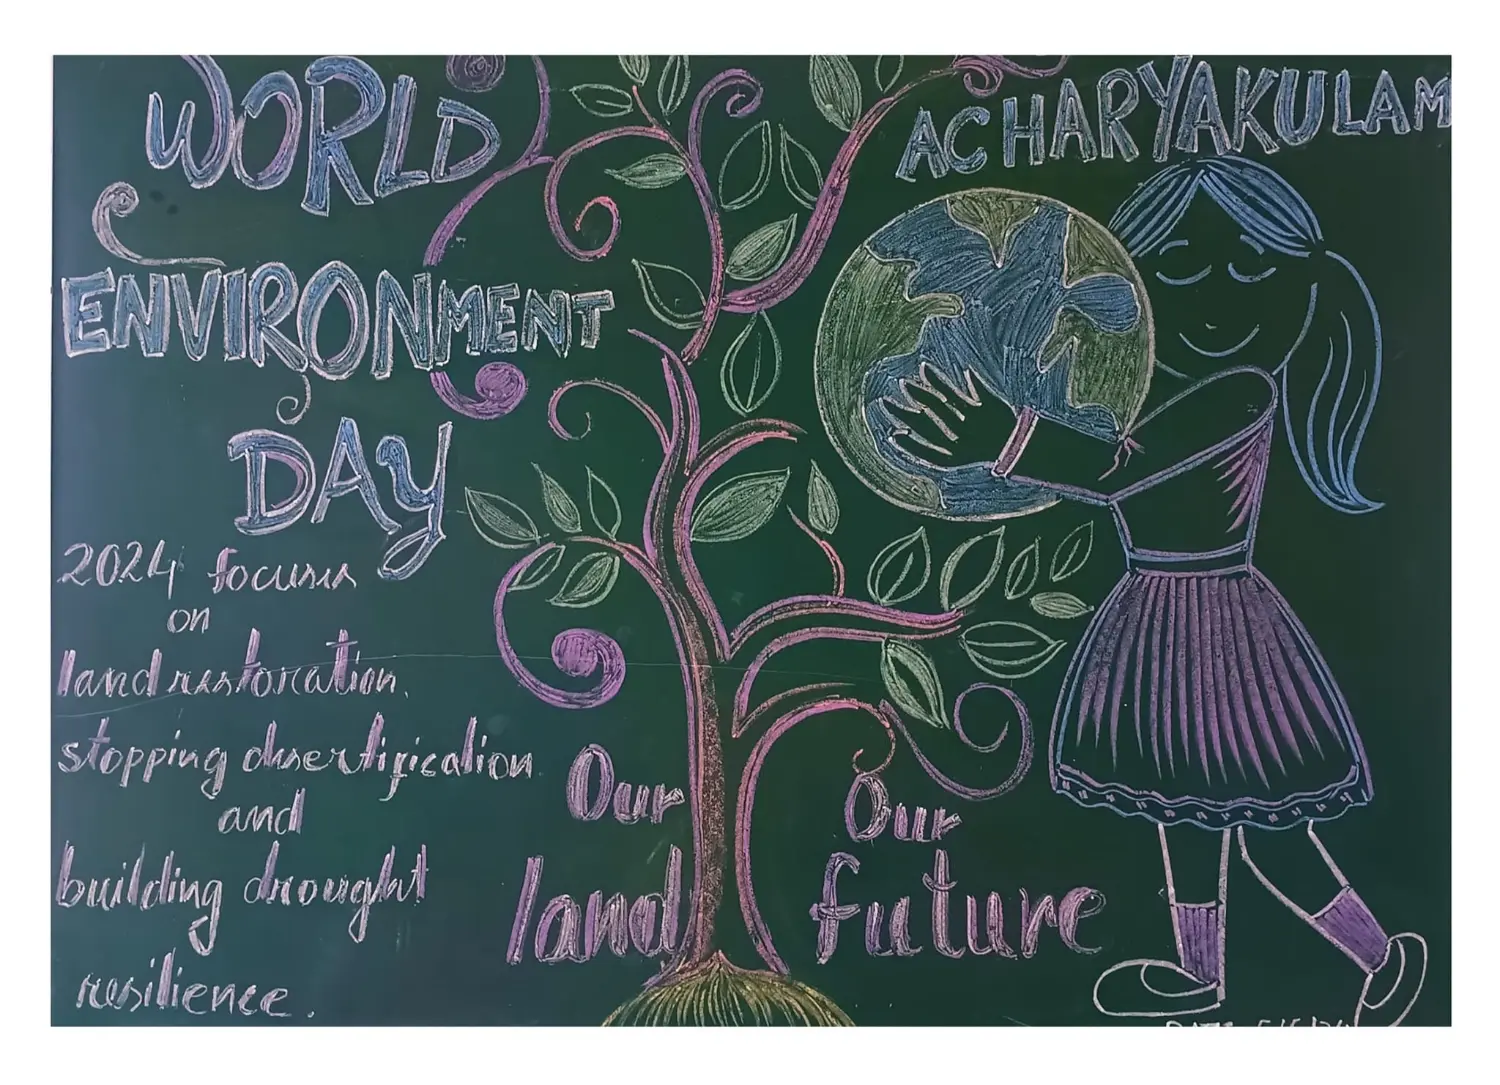 WORLD
ENVIRONMENT
DAY
ACHARYAKULAM
2024 focuses
on
land restoration.
stopping desertification
and
building drought
resilience.
Our
land
Our
future